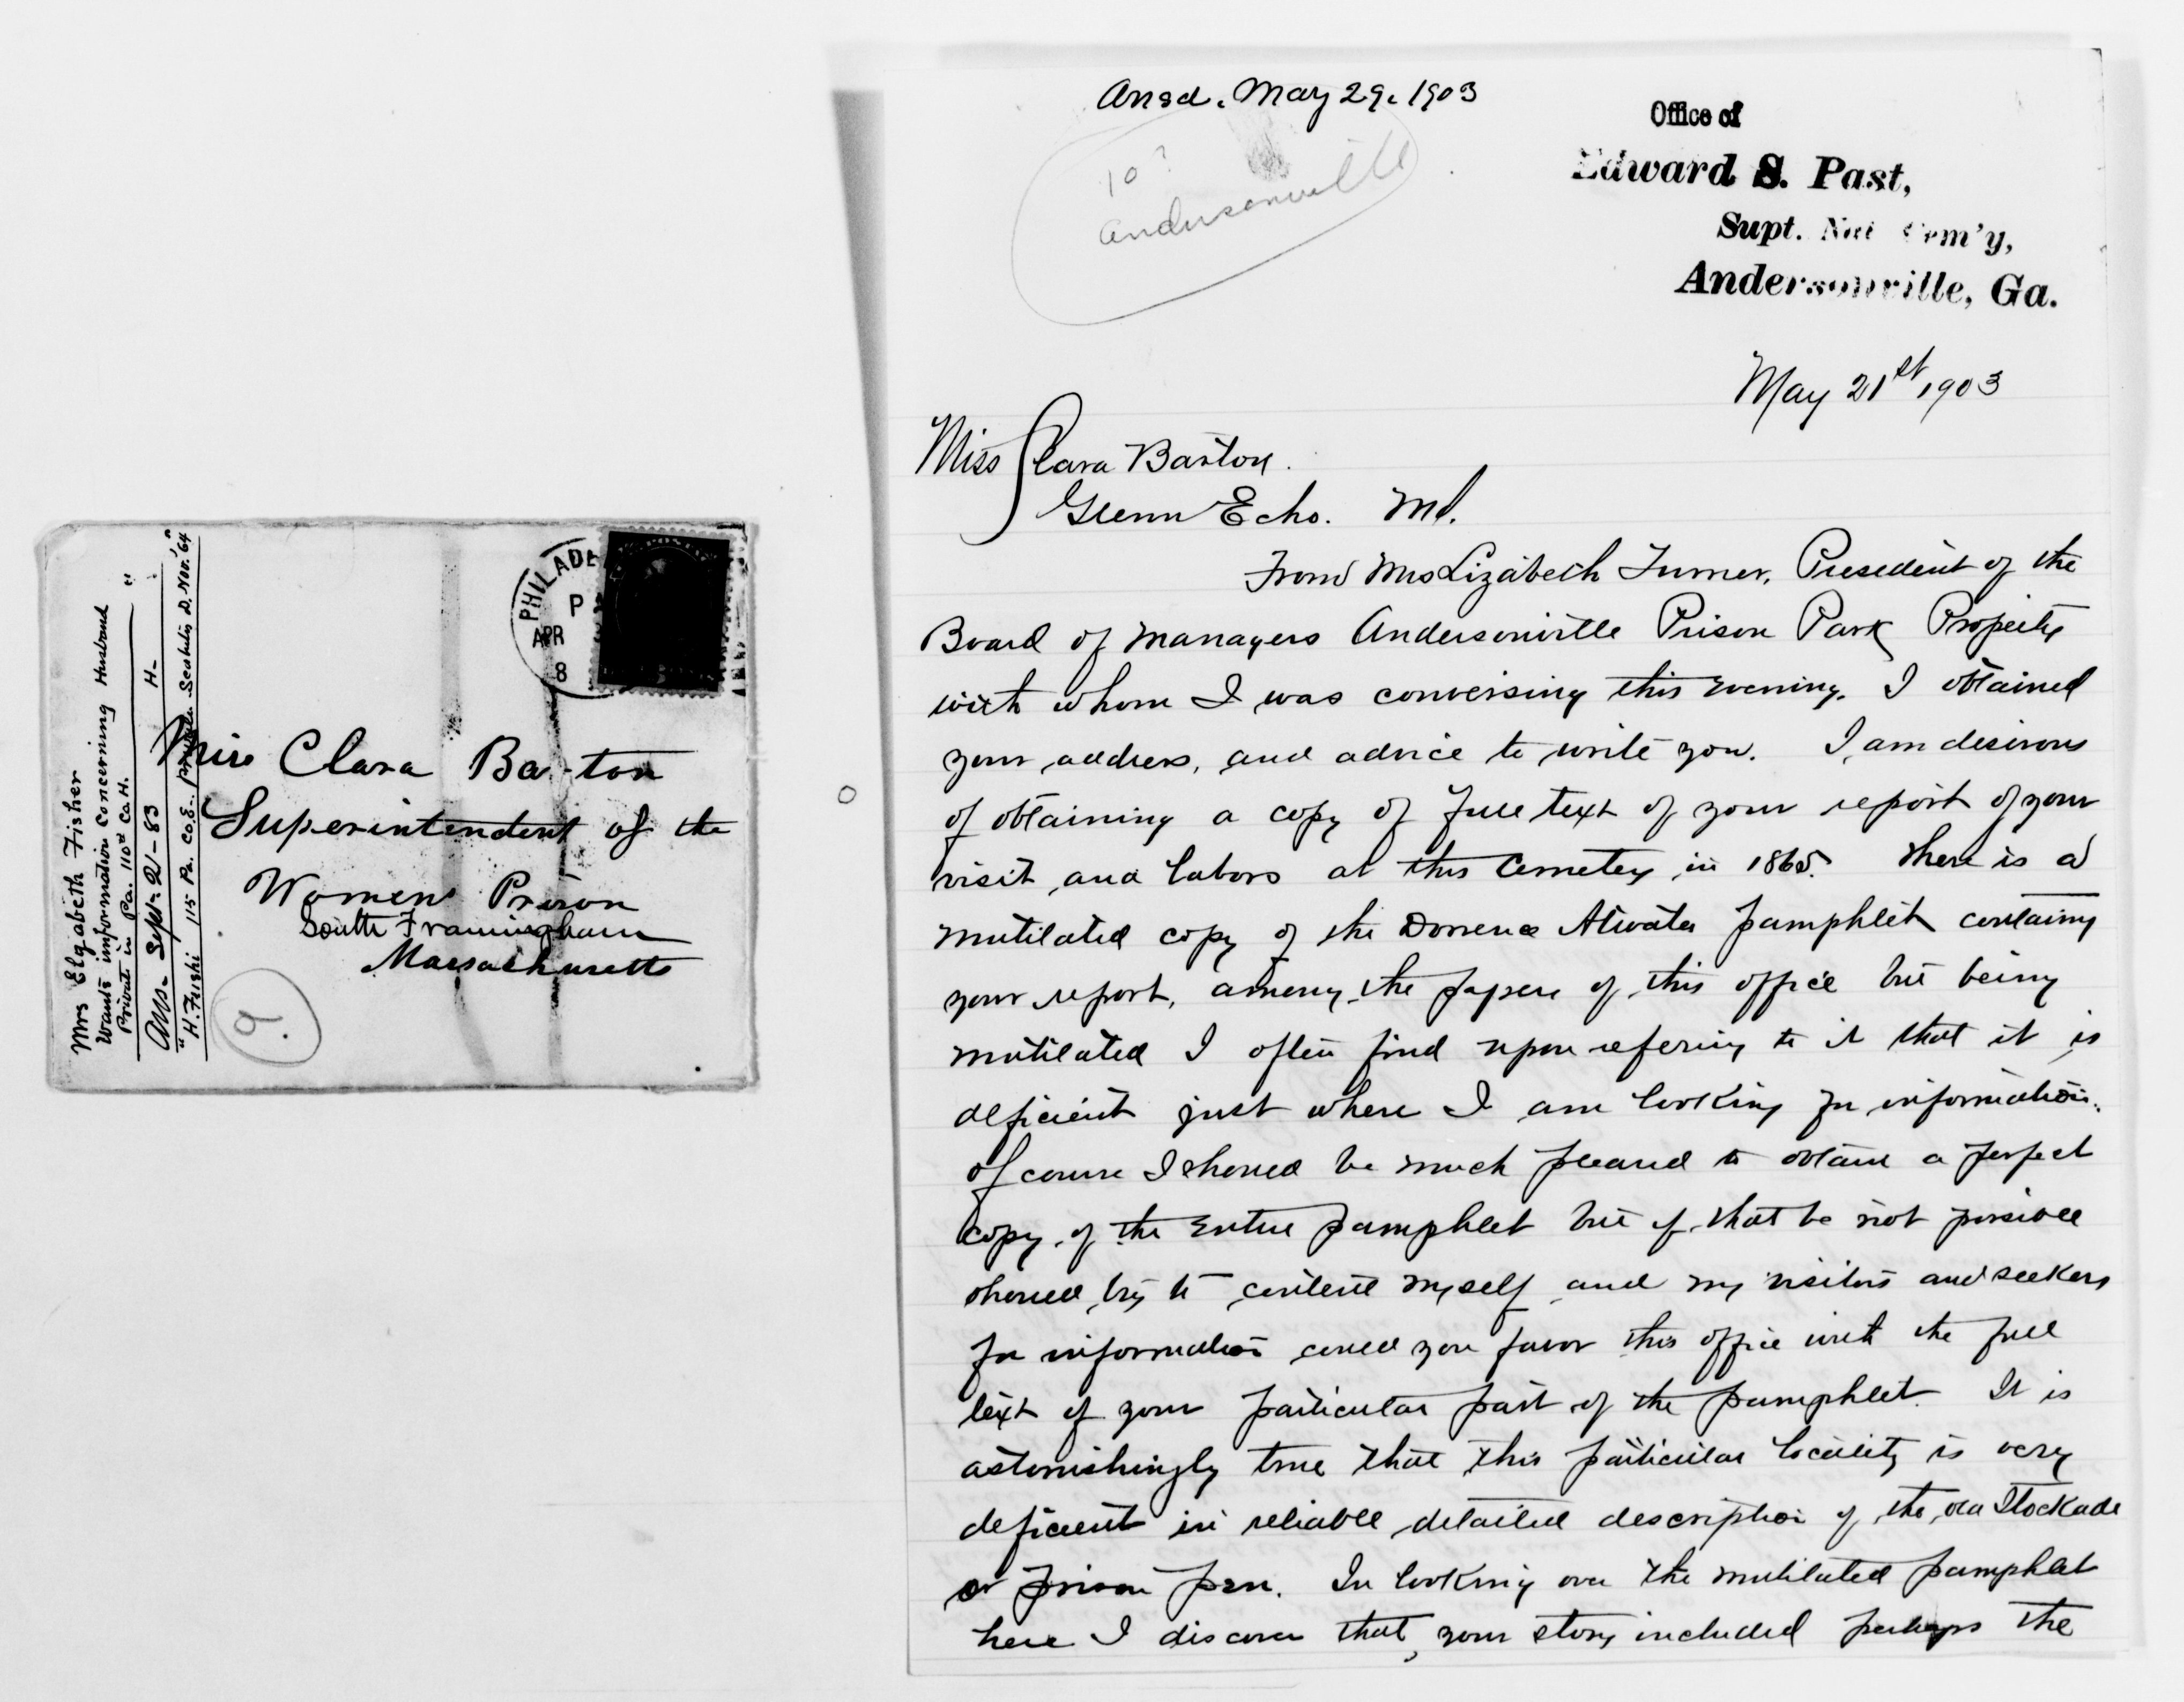 Mrs Elizabeth Fisher
Wants information concerning Husband
Private in Pa. 110th Co. H. "
Ans- Sept- 21- 83 H-
"H. Fushi 115 Pa. Co. E. Scorbutis D. Nov. 64"
PHILADE
P
APR
8
Miss Clara Barton
Superintendent of the
Women Prison
South Framingham
Massachusetts
9.
Ansd. May 29. 1903
10?
Andersonville
Office of
Edward S. Past,
Supt. Nat Cem'y,
Andersonville, Ga.
May 21st 1903
Miss Clara Barton.
Glenn Echo. Md.
From Mrs Lizabeth Turner, President of the
Board of Managers Andersonville Prison Park Property
with whom I was conversing this evening. I obtained
your address, and advice to write you. I am desirous
of obtaining a copy of full text of your report of your
visit and labors at this Cemetery in 1865. There is a
mutilated copy of the Dorrence Atwater pamphlet containing
your report, among the papers of this office but being
mutilated I often find upon refering to it that it is
deficient just where I am looking for information.
Of course I should be much pleased to obtain a perfect
copy of the entire pamphlet but if that be not possible
should try to content myself and my visitors and seekers
for information could you favor this office with the full
text of your particular part of the pamphlet. It is
astonishingly true that this particular locality is very
deficient in reliable detailed description of the old Stockade
or prison pen. In looking over the mutilated pamphlet
here I discover that your story included perhaps the